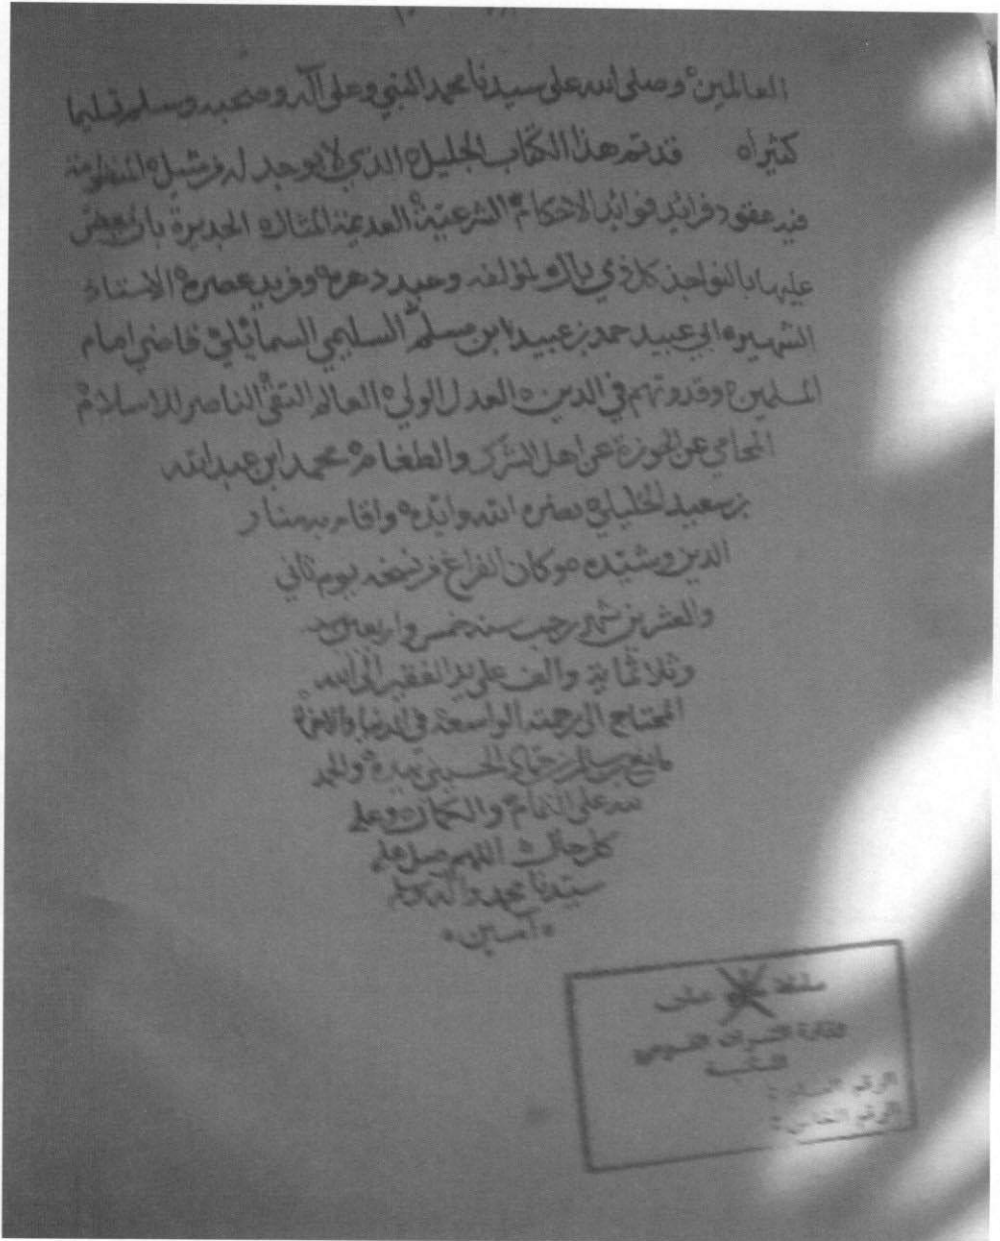 العالمين وصلى الله على سيدنا محمد النبي وعلى آله وصحبه وسلم تسليما
كثيراه قد تم هذا الكتاب الجليل الذي لا يوجد له من مثيل المنظومة
فيه عقود فرايد فوايد الاحكام الشرعية العديمة المثال الجديرة بان يعض
عليها بالنواجذ كل ذي بال لمؤلفه وحيد دهره وفريد عصره الاستاذ
الشهير ابي عبيد حمد بن عبيد ابن مسلم السليمي السمائلي قاضي امام
المسلمين وقدوتهم في الدين العدل الولي العالم التقي الناصر للاسلام
المحامي عن الحوزة عن اهل الشرك والطغام محمد ابن عبد الله
بن سعيد الخليلي نصره الله وايده واقام به منار
الدين وشيده وكان الفراغ من نسخه يوم ثاني
والعشرين شهر رجب سنة خمس واربعين
وثلاثماية والف على يد الفقير الى الله
المحتاج الى رحمته الواسعة في الدنيا والاخرة
بيده والحمد
لله على التمام والكمال وعلى
كل حال اللهم صل على
سيدنا محمد وآله
امين
سلطنة عمان
وزارة التراث القومي
الرقم العام :
الرقم الخاص :